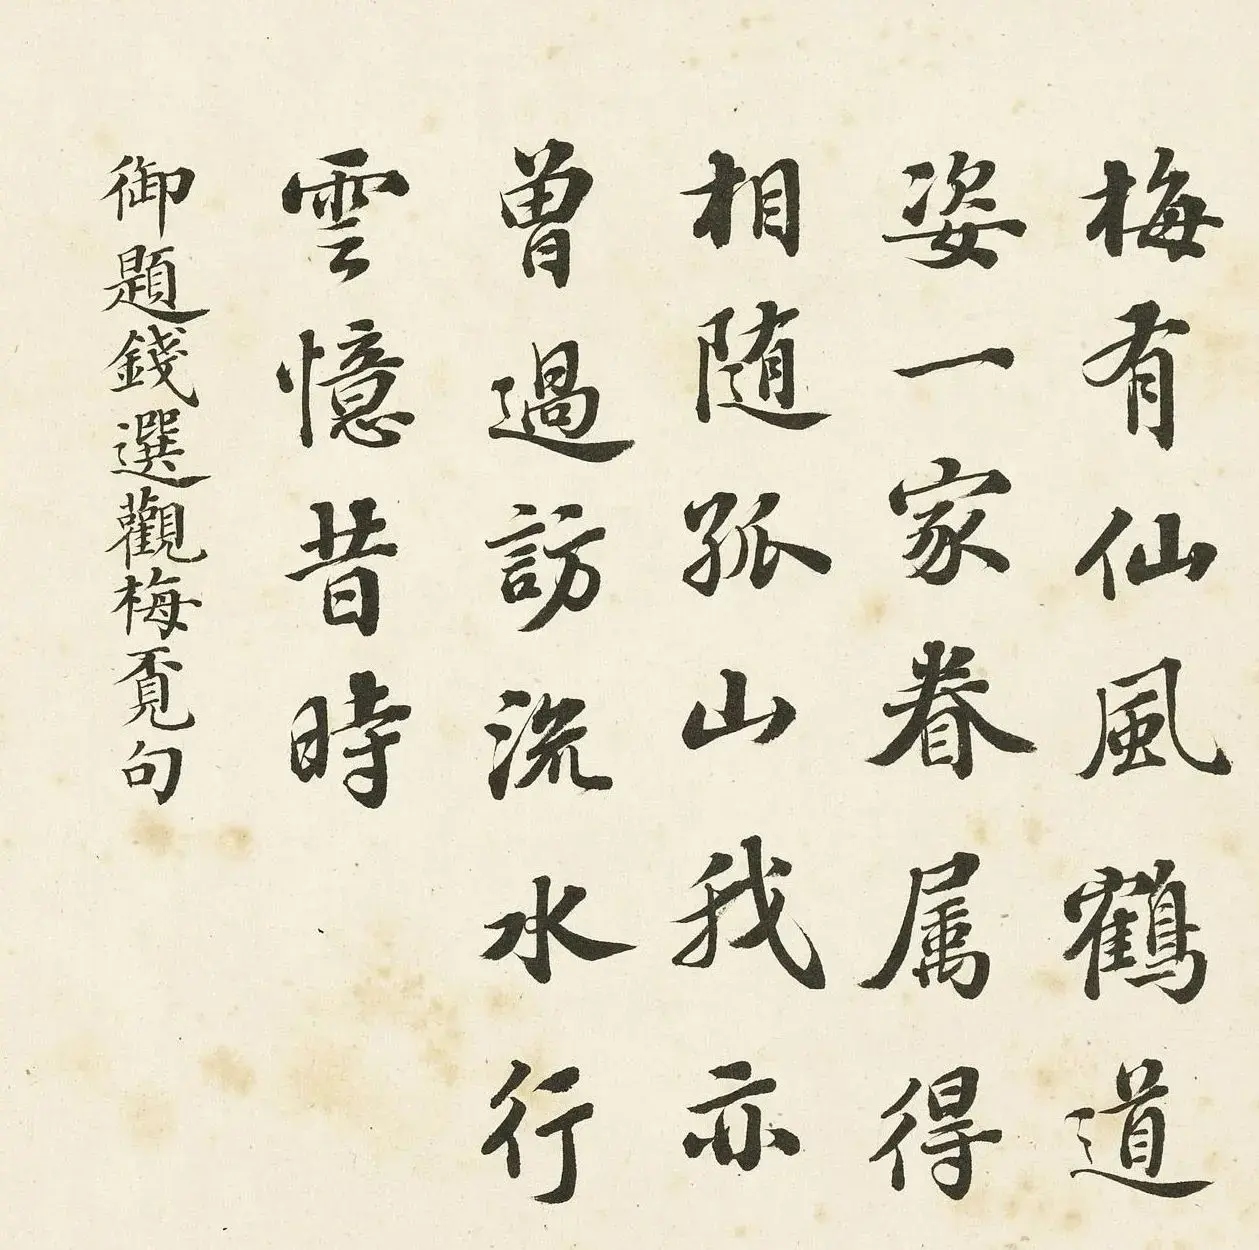 梅有仙風鶴道
姿一家眷属得
相随孤山我亦
曽過訪流水行
雲憶昔時
御題錢選觀梅覔句